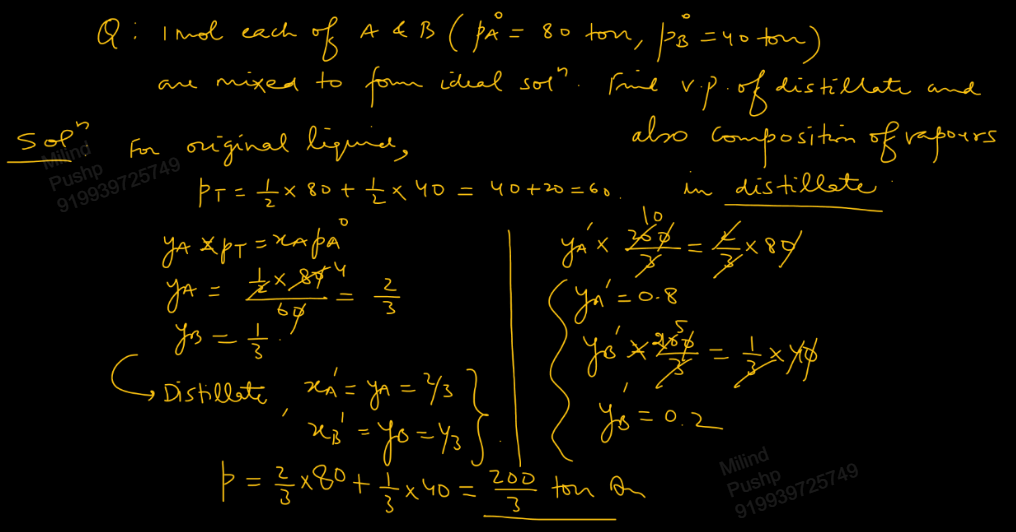 Q: 1 mol each of A & B (pA° = 80 torr, pB° = 40 torr)
are mixed to form ideal solⁿ. Find v.p. of distillate and
also composition of vapours
in distillate.
Solⁿ: For original liquid,
pT = 1/2 × 80 + 1/2 × 40 = 40 + 20 = 60.
yA × pT = xA pA°
yA = (1/2 × 80)/60 = 2/3
4
yB = 1/3.
→ Distillate, xA' = yA = 2/3
xB' = yB = 1/3
p = 2/3 × 80 + 1/3 × 40 = 200/3 torr An
yA' × 200/3 = 2/3 × 80
10
yA' = 0.8
yB' × 200/3 = 1/3 × 40
5
yB' = 0.2
Milind
Pushp
919939725749
Milind
Pushp
919939725749